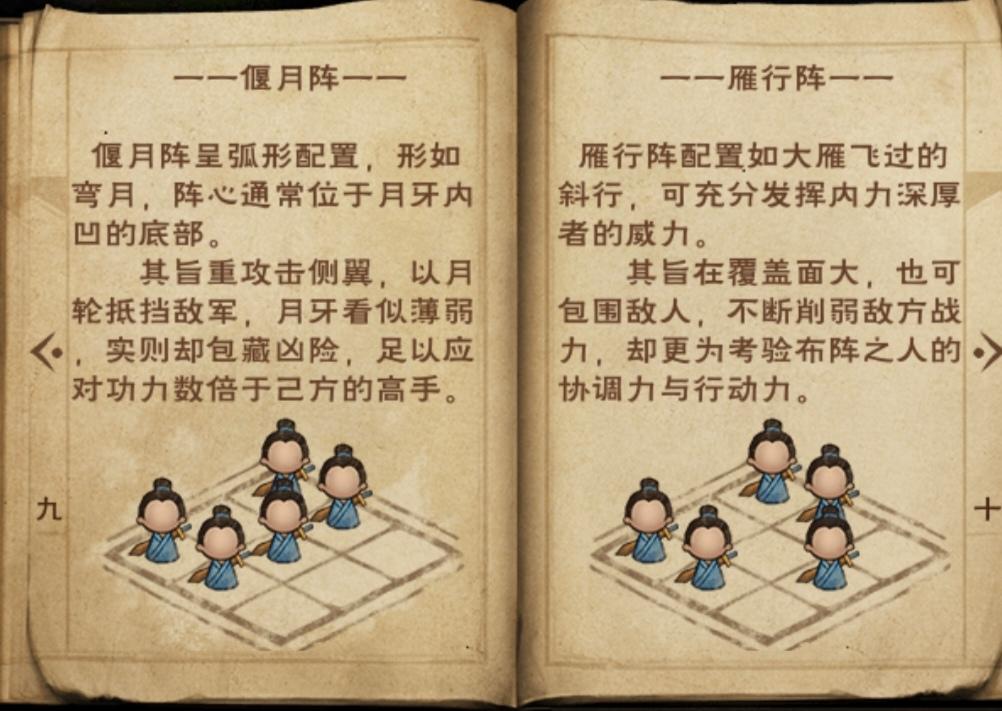 ——偃月阵——
偃月阵呈弧形配置，形如
弯月，阵心通常位于月牙内
凹的底部。
其旨重攻击侧翼，以月
轮抵挡敌军，月牙看似薄弱
，实则却包藏凶险，足以应
对功力数倍于己方的高手。
九
——雁行阵——
雁行阵配置如大雁飞过的
斜行，可充分发挥内力深厚
者的威力。
其旨在覆盖面大，也可
包围敌人，不断削弱敌方战
力，却更为考验布阵之人的
协调力与行动力。
十